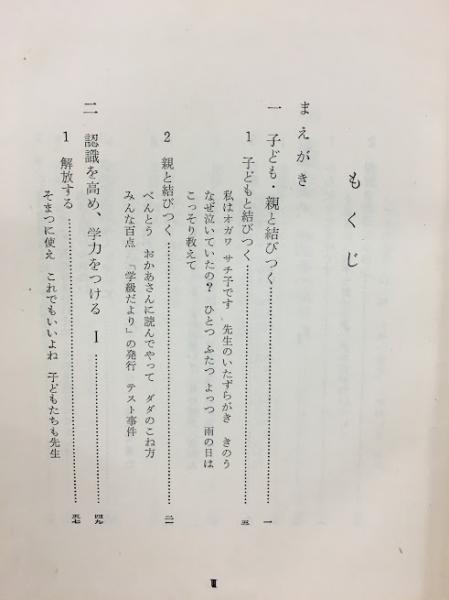 もくじ
まえがき
一 子ども・親と結びつく……………………一
1 子どもと結びつく……………………五
私はオガワ サチ子です 先生のいたずらがき きのう
なぜ泣いていたの? ひとつ ふたつ よっつ 雨の日は
こっそり教えて
2 親と結びつく……………………二一
べんとう おかあさんに読んでやって ダダのこね方
みんな百点 「学級だより」の発行 テスト事件
二 認識を高め、学力をつける Ⅰ……………………四九
1 解放する……………………五七
そまつに使え これでもいいよね 子どもたちも先生